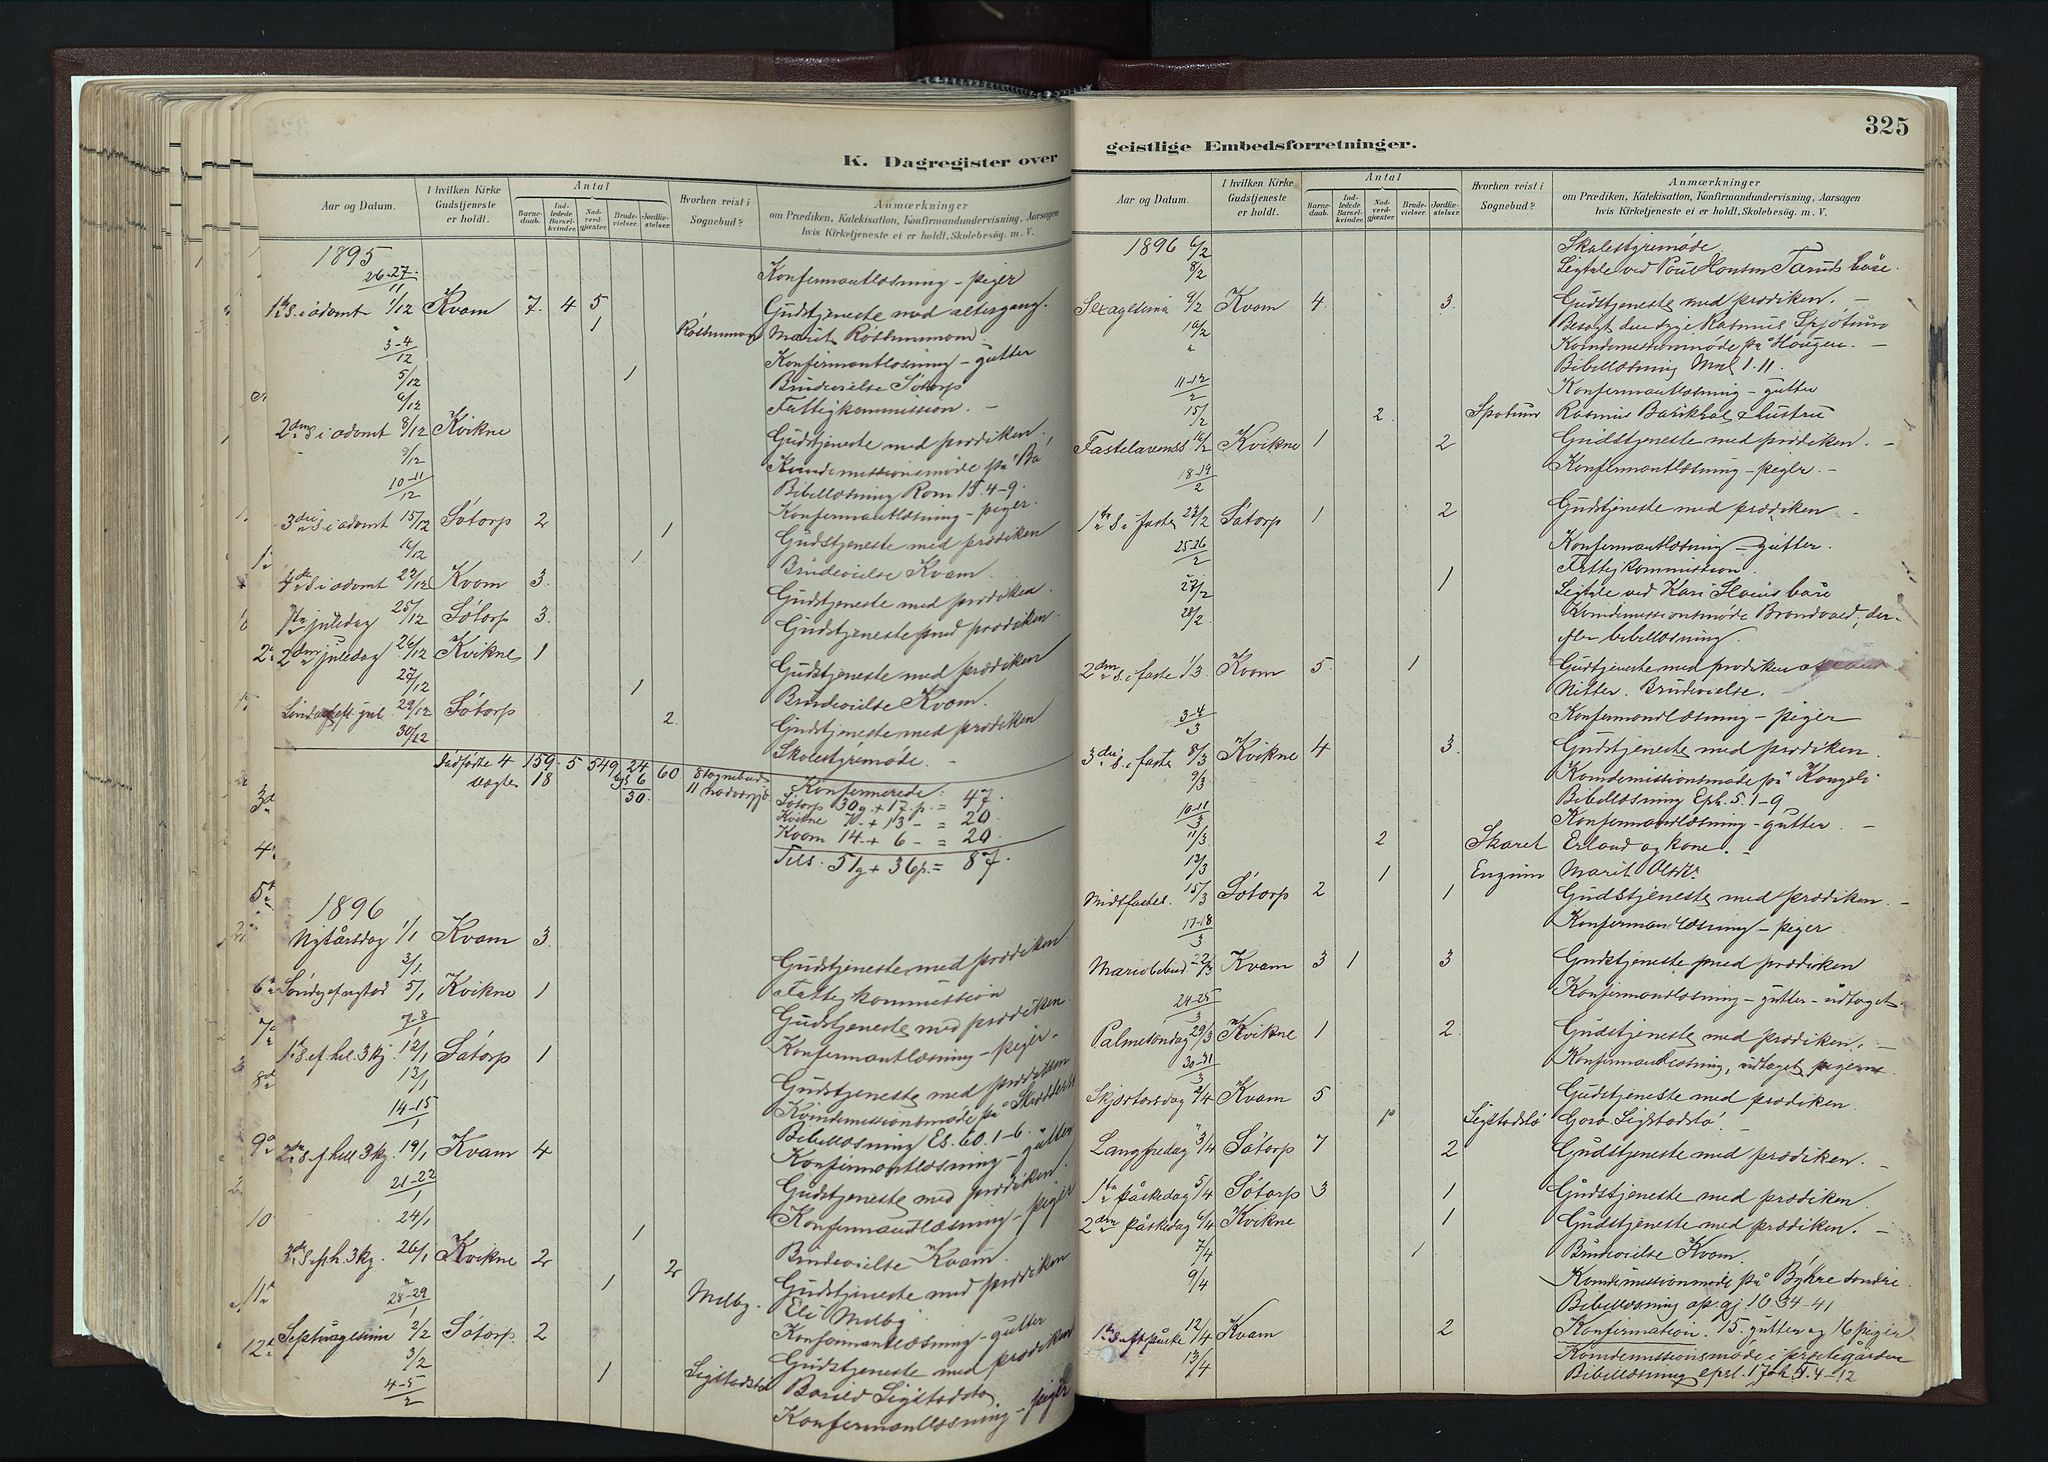 K. Dagregister over
Aar og Datum.
I hvilken Kirke Gudstjeneste er holdt.
Antal
Barnedaab.
Indledede Barselkvinder.
Nadverdgjæster.
Brudevielser.
Jordfæstelser.
Hvorhen reist i Sognebud?
Anmærkninger
om Prædiken, Katekisation, Konfirmandundervisning, Aarsagen
hvis Kirketjeneste ei er holdt, Skolebesøg. m. V.
1895
26-27/11 Konfirmantlæsning - piger
1ste S. i advent 1/12 Kvam 7. 4 5 Gudstjeneste med altergang.
1 Marit
3-4/12 Konfirmantlæsning - gutter
5/12 1 Brudevielse Sótorp
6/12 Fattigkommission. -
2den S i advent 8/12 Kvikne Gudstjeneste med prædiken.
9/12 Kvindemissionsmøde på Bø,
Bibellæsning Rom 15.4-9.
10-11/12 Konfirmantlæsning - piger.
3die S i advent 15/12 Sótorp 2 1 Gudstjeneste med prædiken
16/12 1 Brudevielse Kvam.
4de S i advent 22/12 Kvam 3. Gudstjeneste med prædiken.
1ste juledag 25/12 Sótorp 3. Gudstjeneste med prædiken.
2den juledag 26/12 Kvikne 1 Gudstjeneste med prædiken
27/12 1 Brudevielse Kvam.
Søndag eft. jul 29/12 Sótorp 2. Gudstjeneste med prædiken
30/12 Skolestyremøde. -
Dødfødte 4 159. 5 549 24 60 8 sognebud
18 6 11
30. Konfirmerede:
Sótorp 30g + 17.p. = 47.
Kvikne 7 - + 13 - = 20.
Kvam 14. + 6 - = 20
Tils: 51g + 36p. = 87.
1896
Nytårsdag 1/1 Kvam 3. Gudstjeneste med prædiken.
3/1 Fattigkommission
Søndag ef nytåd 5/1 Kvikne 1 Gudstjeneste med prædiken.
7-8/1 Konfirmantlæsning - piger.
1ste S. ef. hel. 3 kj. 12/1 Sótorp 1 Gudstjeneste med prædiken
13/1 Kvindemissionsmøde på
Bibellæsning Es. 60.1-6.
14-15/1 Konfirmantlæsning - gutter
2den S. ef. hell 3 kg. 19/1 Kvam 4 Gudstjeneste med prædiken.
21-22/1 Konfirmandlæsning - piger
24/1 1 Brudevielse Kvam.
3die S. ef. h. 3 kg. 26/1 Kvikne 2 2 Gudstjeneste med prædiken
1 Melby. Eli Melby
28-29/1 Konfirmantlæsning - gutter
Septuagesima 2/2 Sótorp. 2 Gudstjeneste med prædiken
3/2 1 Sigstadstø Sigstadstø
4-5/2 Konfermantlæsning - piger
geistlige Embedsforretninger.
325
Aar og Datum.
I hvilken Kirke Gudstjeneste er holdt.
Antal
Barnedaab.
Indledede Barselkvinder.
Nadverdgjæster.
Brudevielser.
Jordfæstelser.
Hvorhen reist i Sognebud?
Anmærkninger
om Prædiken, Katekisation, Konfirmandundervisning, Aarsagen
hvis Kirketjeneste ei er holdt, Skolebesøg. m. V.
1896 6/2 Skolestyremøde.
8/2 Ligtale ved Poul Hansen båre.
Sexagesima 9/2 Kvam 4. 3. Gudstjeneste med prædiken. -
10/2 Besøgt den syge Rasmus
Kvindemissionsmøde på Haugen. -
Bibellæsning Mal 1.11.
11-12/2 Konfirmantlæsning - gutter
15/2 2 Rasmus & hustru
Fastelavens 16/2 Kvikne 1 2 Gudstjeneste med prædiken. -
18-19/2 Konfirmantlæsning - piger. -
1ste S. i faste 23/2 Sótorp 1 2 Gudstjeneste med prædiken -
25-26/2 Konfirmantlæsning - gutter.
Fattigkommission.
27/2 1 Ligtale ved Kari båre
28/2. Kvindemissionsmøde Brandvold, der-
efter bibellæsning.
2den S. i faste 1/3 Kvam 5. 1 Gudstjeneste med prædiken af
Nitter. Brudevielse.
3-4/3 Konfirmandlæsning - piger
3die S. i faste 8/3 Kvikne 4 3. Gudstjeneste med prædiken.
9/3 Kvindemissionsmøde på Kongsli
Bibellæsning Eph. 5. 1-9
10-11/3 Konfirmandlæsning - gutter. -
11/3 2 Skaret Erland og kone. -
13/3 1 Marit
Midtfaste S. 15/3 Sótorp 2 1 Gudstjeneste med prædiken. -
17-18/3 Konfirmandlæsning - piger.
Mariæbebud. 22/3 Kvam 3 1 3 Gudstjeneste med prædiken
24-25/3 Konfirmandlæsning - gutter - udtaget.
Palmesøndag 29/3 Kvikne 1 2. Gudstjeneste med prædiken. -
30-31/3 Konfirmantlæsning, udtaget pigerne.
Skjærtorsdag 2/4 Kvam 5 Gudstjeneste med prædiken.
1 Sigstadstø Goro Sigstadstø.
Langfredag 3/4 Sótorp 7 2 Gudstjeneste med prædiken. -
1ste påskedag 5/4 Sótorp 3 1 Gudstjeneste med prædiken.
2den påskedag 6/4 Kvikne 1 Gudstjeneste med prædiken. -
7/4 1 Brudevielse Kvam.
9/4 Kvindemissionsmøde på Byhre søndre.
Bibellæsning ap. gj 10.34-41
1ste S. eft påske 12/4 Kvam 2 Konfirmation. 15. gutter og 16 piger
13/4 Kvindemissionsmøde i præstegården
Bibellæsning epsl. 1 Joh 5. 4-12